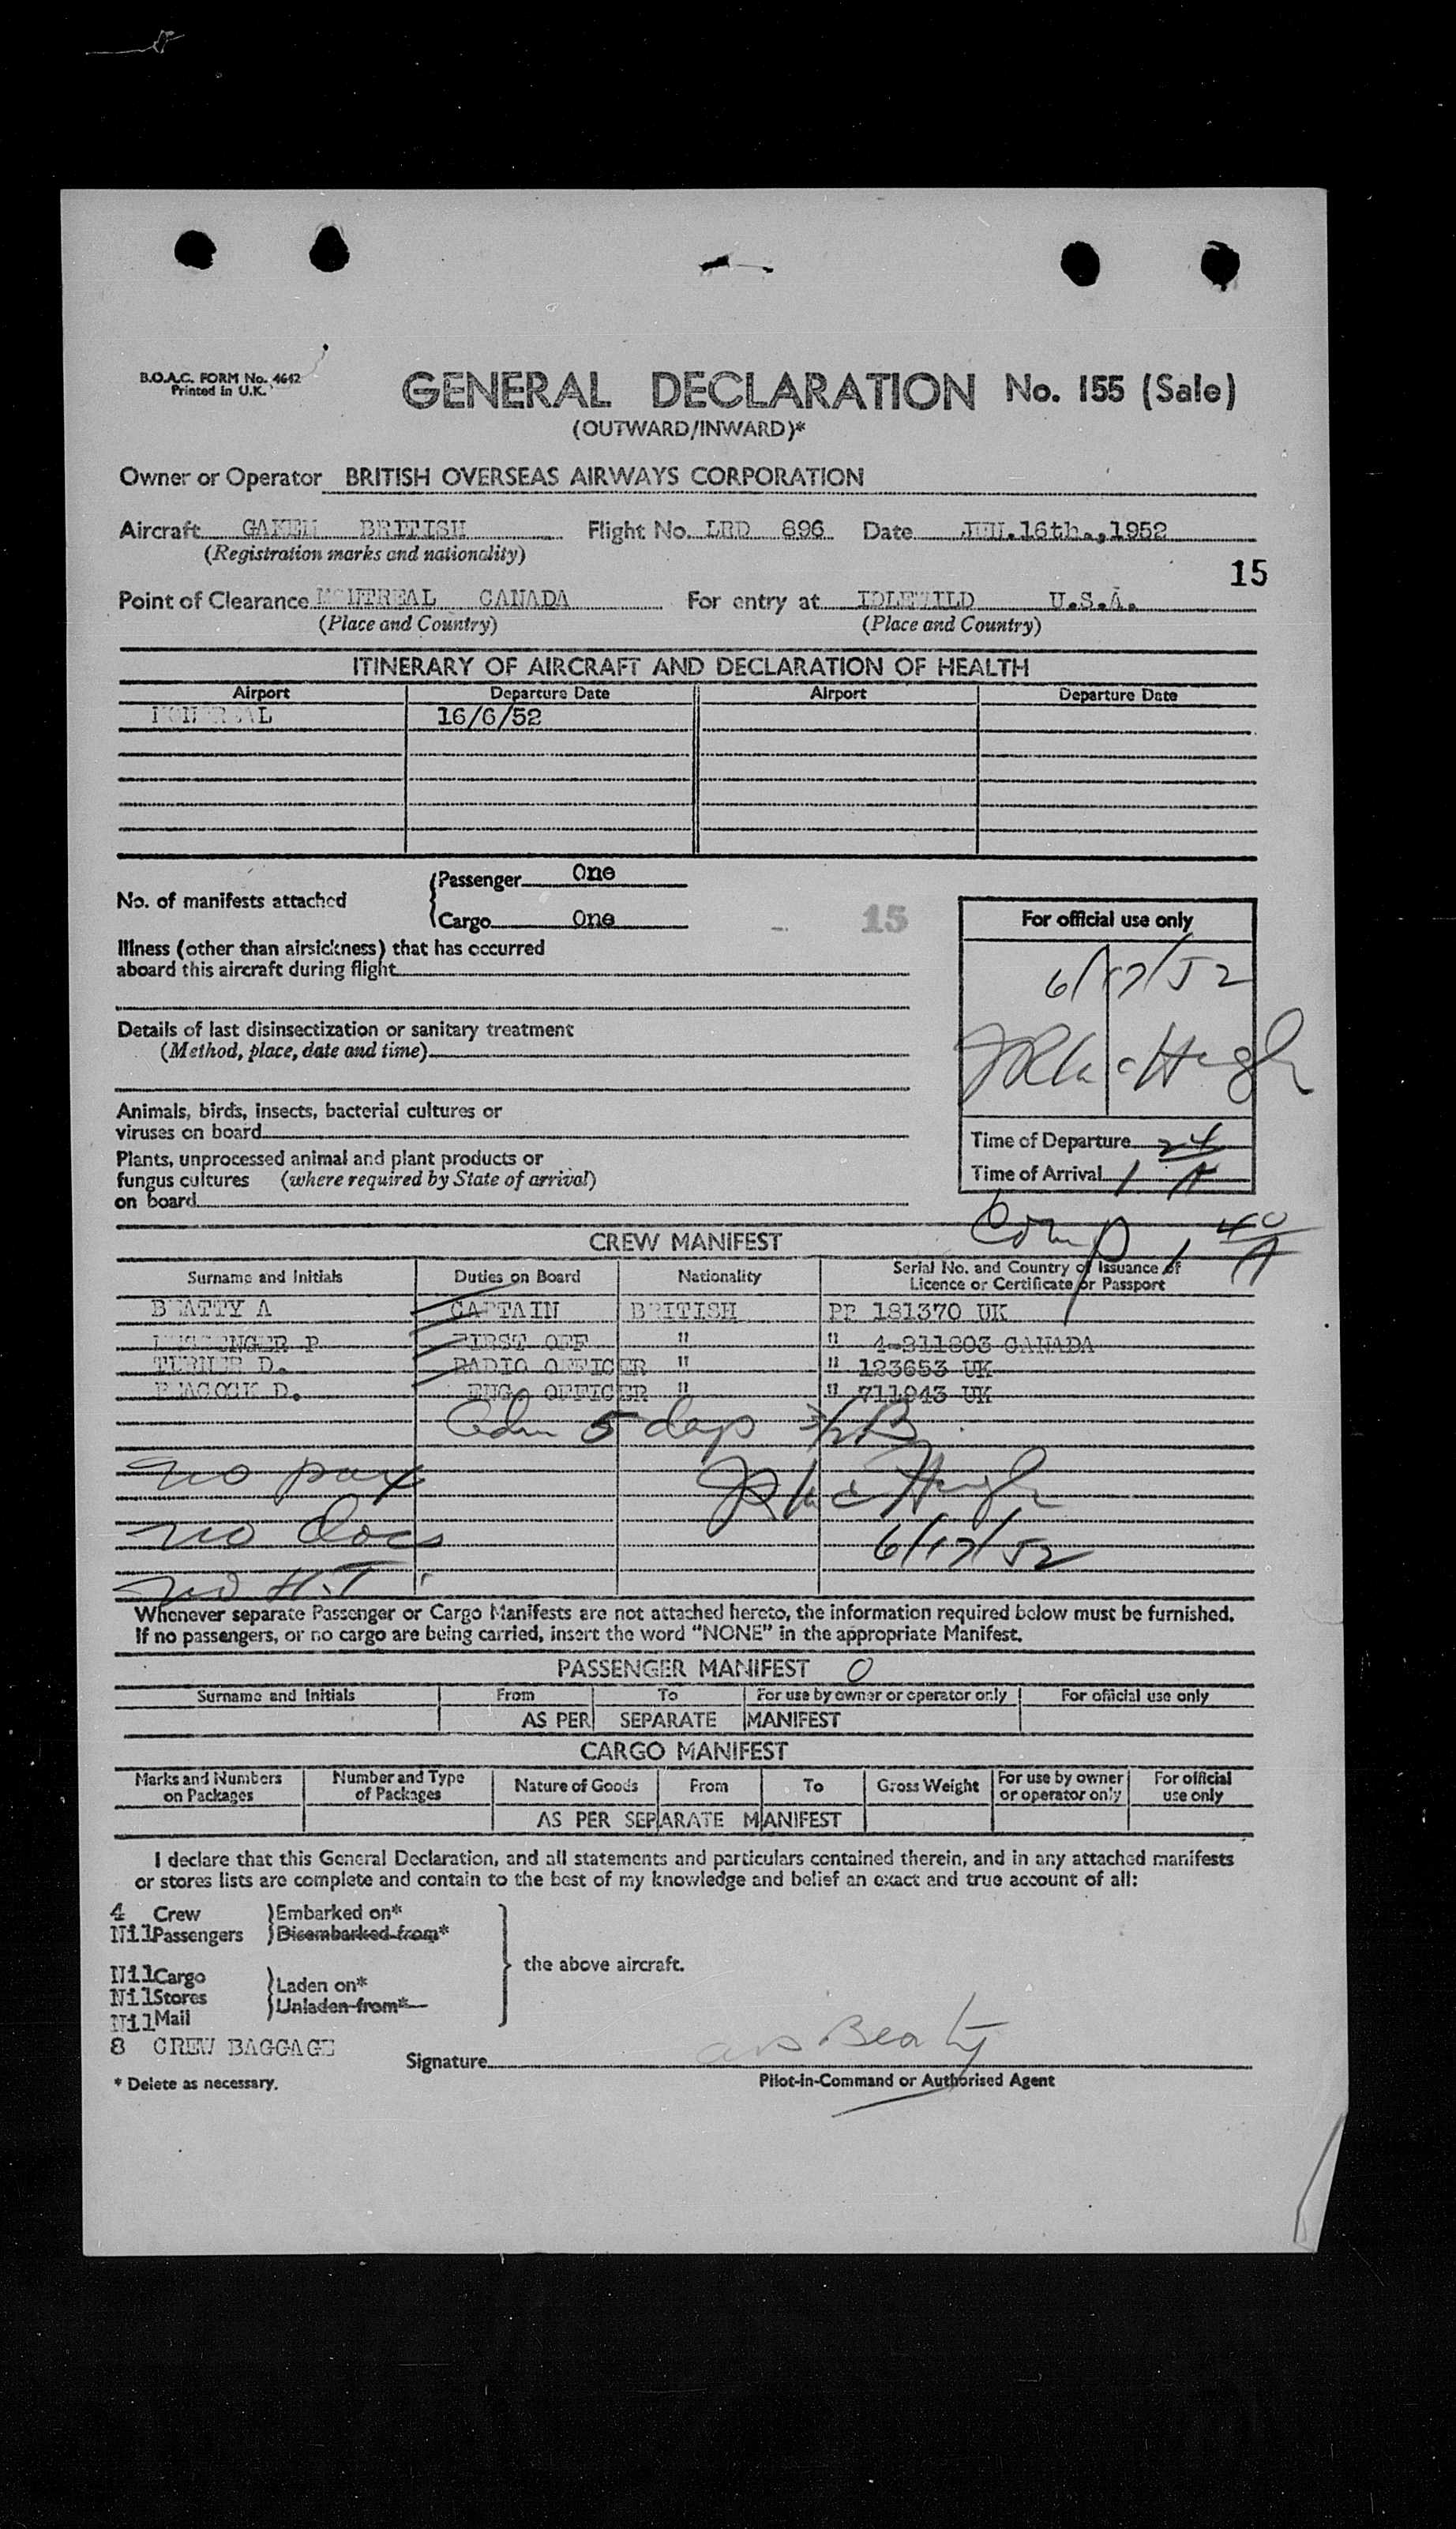 B.O.A.C. FORM No. 4642
Printed in U.K.
GENERAL DECLARATION No. 155 (Sale)
(OUTWARD/INWARD)*
Owner or Operator BRITISH OVERSEAS AIRWAYS CORPORATION
Aircraft BRITISH Flight No. LRD 896 Date JUN.16th.,1952
(Registration marks and nationality)
15
Point of Clearance MONTREAL CANADA For entry at IDLEWILD U.S.A.
(Place and Country) (Place and Country)
ITINERARY OF AIRCRAFT AND DECLARATION OF HEALTH
Airport Departure Date Airport Departure Date
MONTREAL 16/6/52
Passenger One
No. of manifests attached
Cargo One
15
For official use only
Illness (other than airsickness) that has occurred
aboard this aircraft during flight
6/17/52
Details of last disinsectization or sanitary treatment
(Method, place, date and time)
Animals, birds, insects, bacterial cultures or
viruses on board
Time of Departure 24
Plants, unprocessed animal and plant products or
fungus cultures (where required by State of arrival)
Time of Arrival 1 A
on board
Comp 1 40/A
CREW MANIFEST
Surname and Initials Duties on Board Nationality Serial No. and Country of Issuance of
Licence or Certificate or Passport
BEATTY A CAPTAIN BRITISH PP 181370 UK
P FIRST OFF " " 4-211803 CANADA
TURNER D. RADIO OFFICER " " 123653 UK
PEACOCK D. ENG. OFFICER " " 711943 UK
Adm 5 days
no pax
no docs
6/17/52
no H.T
Whenever separate Passenger or Cargo Manifests are not attached hereto, the information required below must be furnished.
If no passengers, or no cargo are being carried, insert the word "NONE" in the appropriate Manifest.
PASSENGER MANIFEST 0
Surname and Initials From To For use by owner or operator only For official use only
AS PER SEPARATE MANIFEST
CARGO MANIFEST
Marks and Numbers on Packages Number and Type of Packages Nature of Goods From To Gross Weight For use by owner or operator only For official use only
AS PER SEPARATE MANIFEST
I declare that this General Declaration, and all statements and particulars contained therein, and in any attached manifests
or stores lists are complete and contain to the best of my knowledge and belief an exact and true account of all:
4 Crew Embarked on*
Nil Passengers Disembarked from*
the above aircraft.
Nil Cargo Laden on*
Nil Stores Unladen from*
Nil Mail
8 CREW BAGGAGE
Signature
Pilot-in-Command or Authorised Agent
* Delete as necessary.